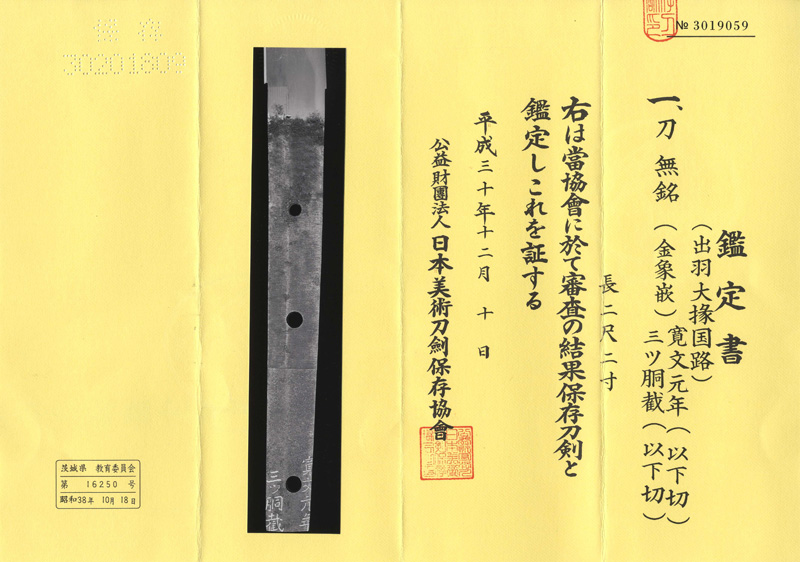 № 3019059
鑑定書
一、刀 無銘（出羽大掾国路）
（金象嵌）寛文元年（以下切）
三ツ胴截（以下切）
長二尺二寸
右は當協會に於て審査の結果保存刀剣と
鑑定しこれを証する
平成三十年十二月十日
公益財團法人日本美術刀劍保存協會
三ツ胴截
30201809
茨城県 教育委員会
第 16250 号
昭和38年 10月 18日